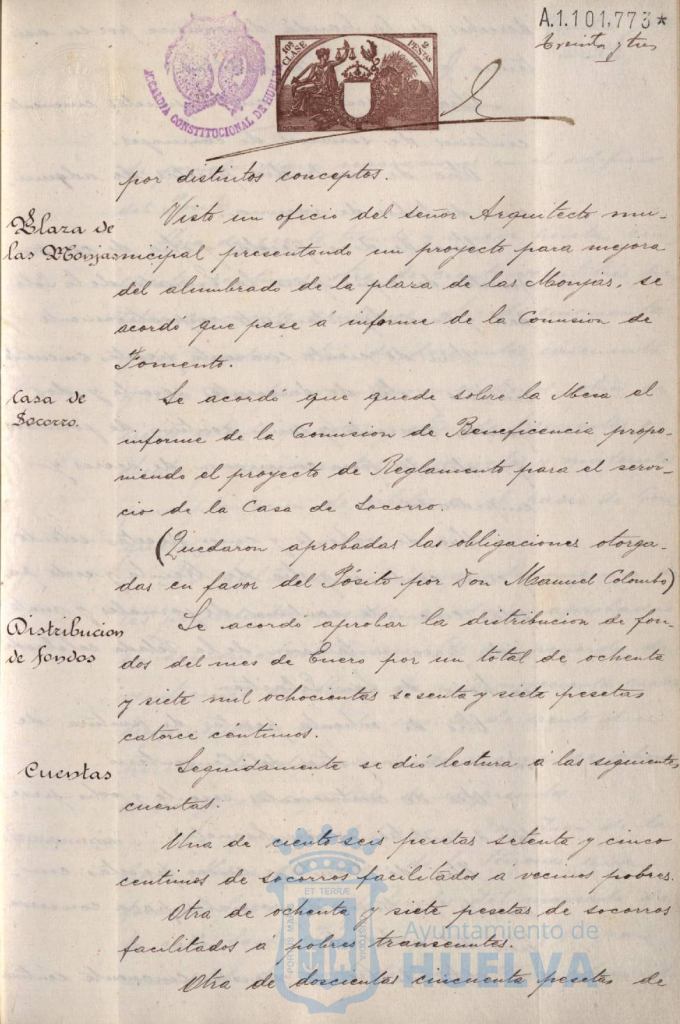 A.1.101,773*
Treinta y tres
ALCALDIA CONSTITUCIONAL DE HUELVA
10ª CLASE
2 PESETAS
por distintos conceptos.
Plaza de
las Monjas
Visto un oficio del señor Arquitecto mu-
nicipal presentando un proyecto para mejora
del alumbrado de la plaza de las Monjas, se
acordó que pase á informe de la Comision de
Fomento.
Casa de
Socorro.
Se acordó que quede sobre la Mesa el
informe de la Comision de Beneficencia propo-
niendo el proyecto de Reglamento para el servi-
cio de la Casa de Socorro.
(Quedaron aprobadas las obligaciones otorga-
das en favor del Pósito por Don Manuel Colombo)
Distribucion
de fondos
Se acordó aprobar la distribucion de fon-
dos del mes de Enero por un total de ochenta
y siete mil ochocientas sesenta y siete pesetas
catorce céntimos.
Cuentas
Seguidamente se dió lectura á las siguientes
cuentas.
Una de ciento seis pesetas setenta y cinco
centimos de socorros facilitados á vecinos pobres.
Otra de ochenta y siete pesetas de socorros
facilitados á pobres transeuntes.
Otra de doscientas cincuenta pesetas de
ET TERRÆ
PORTUS MARIS
CUSTODIA
Ayuntamiento de
HUELVA